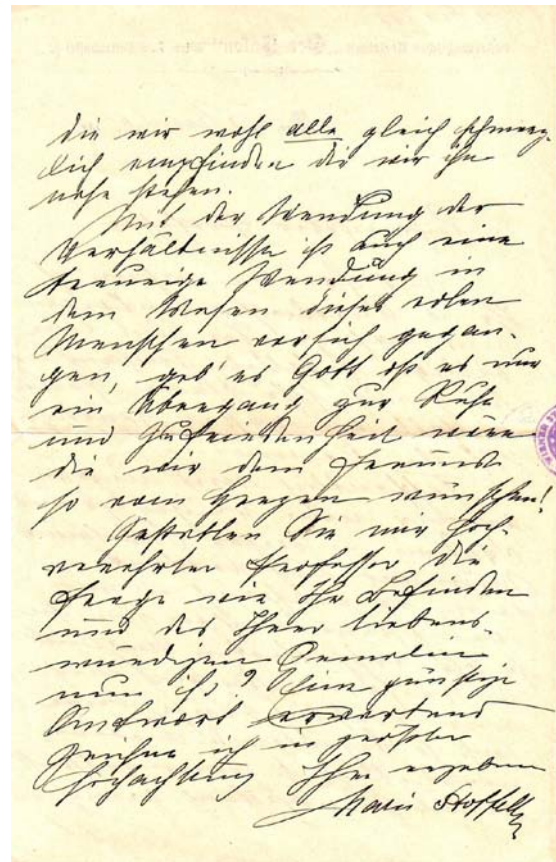 die wir wohl alle gleich schmerz-
lich empfinden die wir ihm
nahe stehen.
Mit der Wendung der
Verhältnisse ist auch eine
traurige Wendung in
dem Wesen dieses edlen
Menschen vor sich gegan-
gen, geb' es Gott es nur
ein Übergang zur Ruhe
und Zufriedenheit wäre
die wir dem Freund
so vom Herzen wünschen!
Gestatten Sie mir hoch-
verehrter Professor die
Frage wie Ihr Befinden
und das Ihrer liebens-
würdigen Gemalin
nun ist? Eine günstige
Antwort erwartend
zeichne ich in größter
Hochachtung Ihre ergebene
Marie Stoffell
WIENER